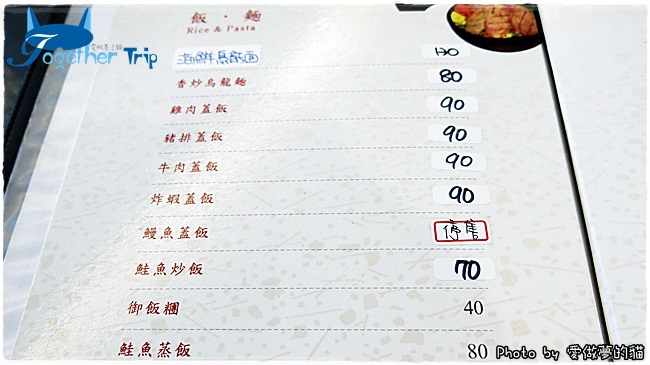 Together Trip
飯 · 麵
Rice & Pasta
海鮮烏龍面 130
香炒烏龍麵 80
雞肉蓋飯 90
豬排蓋飯 90
牛肉蓋飯 90
炸蝦蓋飯 90
鰻魚蓋飯 停售
鮭魚炒飯 70
御飯糰 40
鮭魚蒸飯 80
Photo by 愛做夢的貓